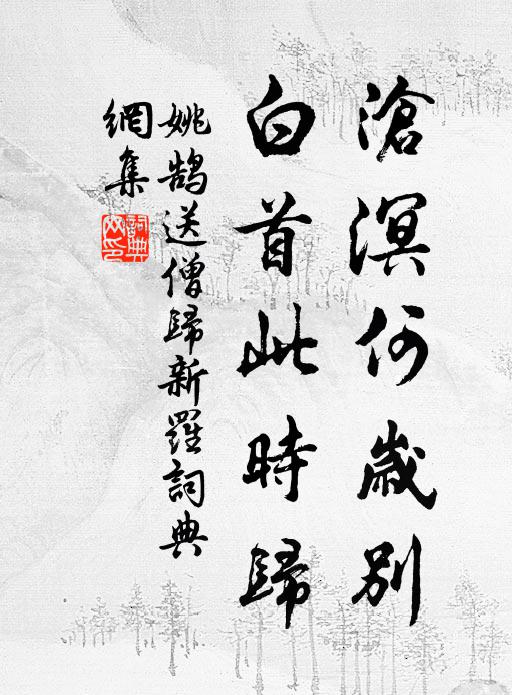 滄溟何歲別
白首此時歸
姚鵠送僧歸新羅詞典
網集
詞典網印